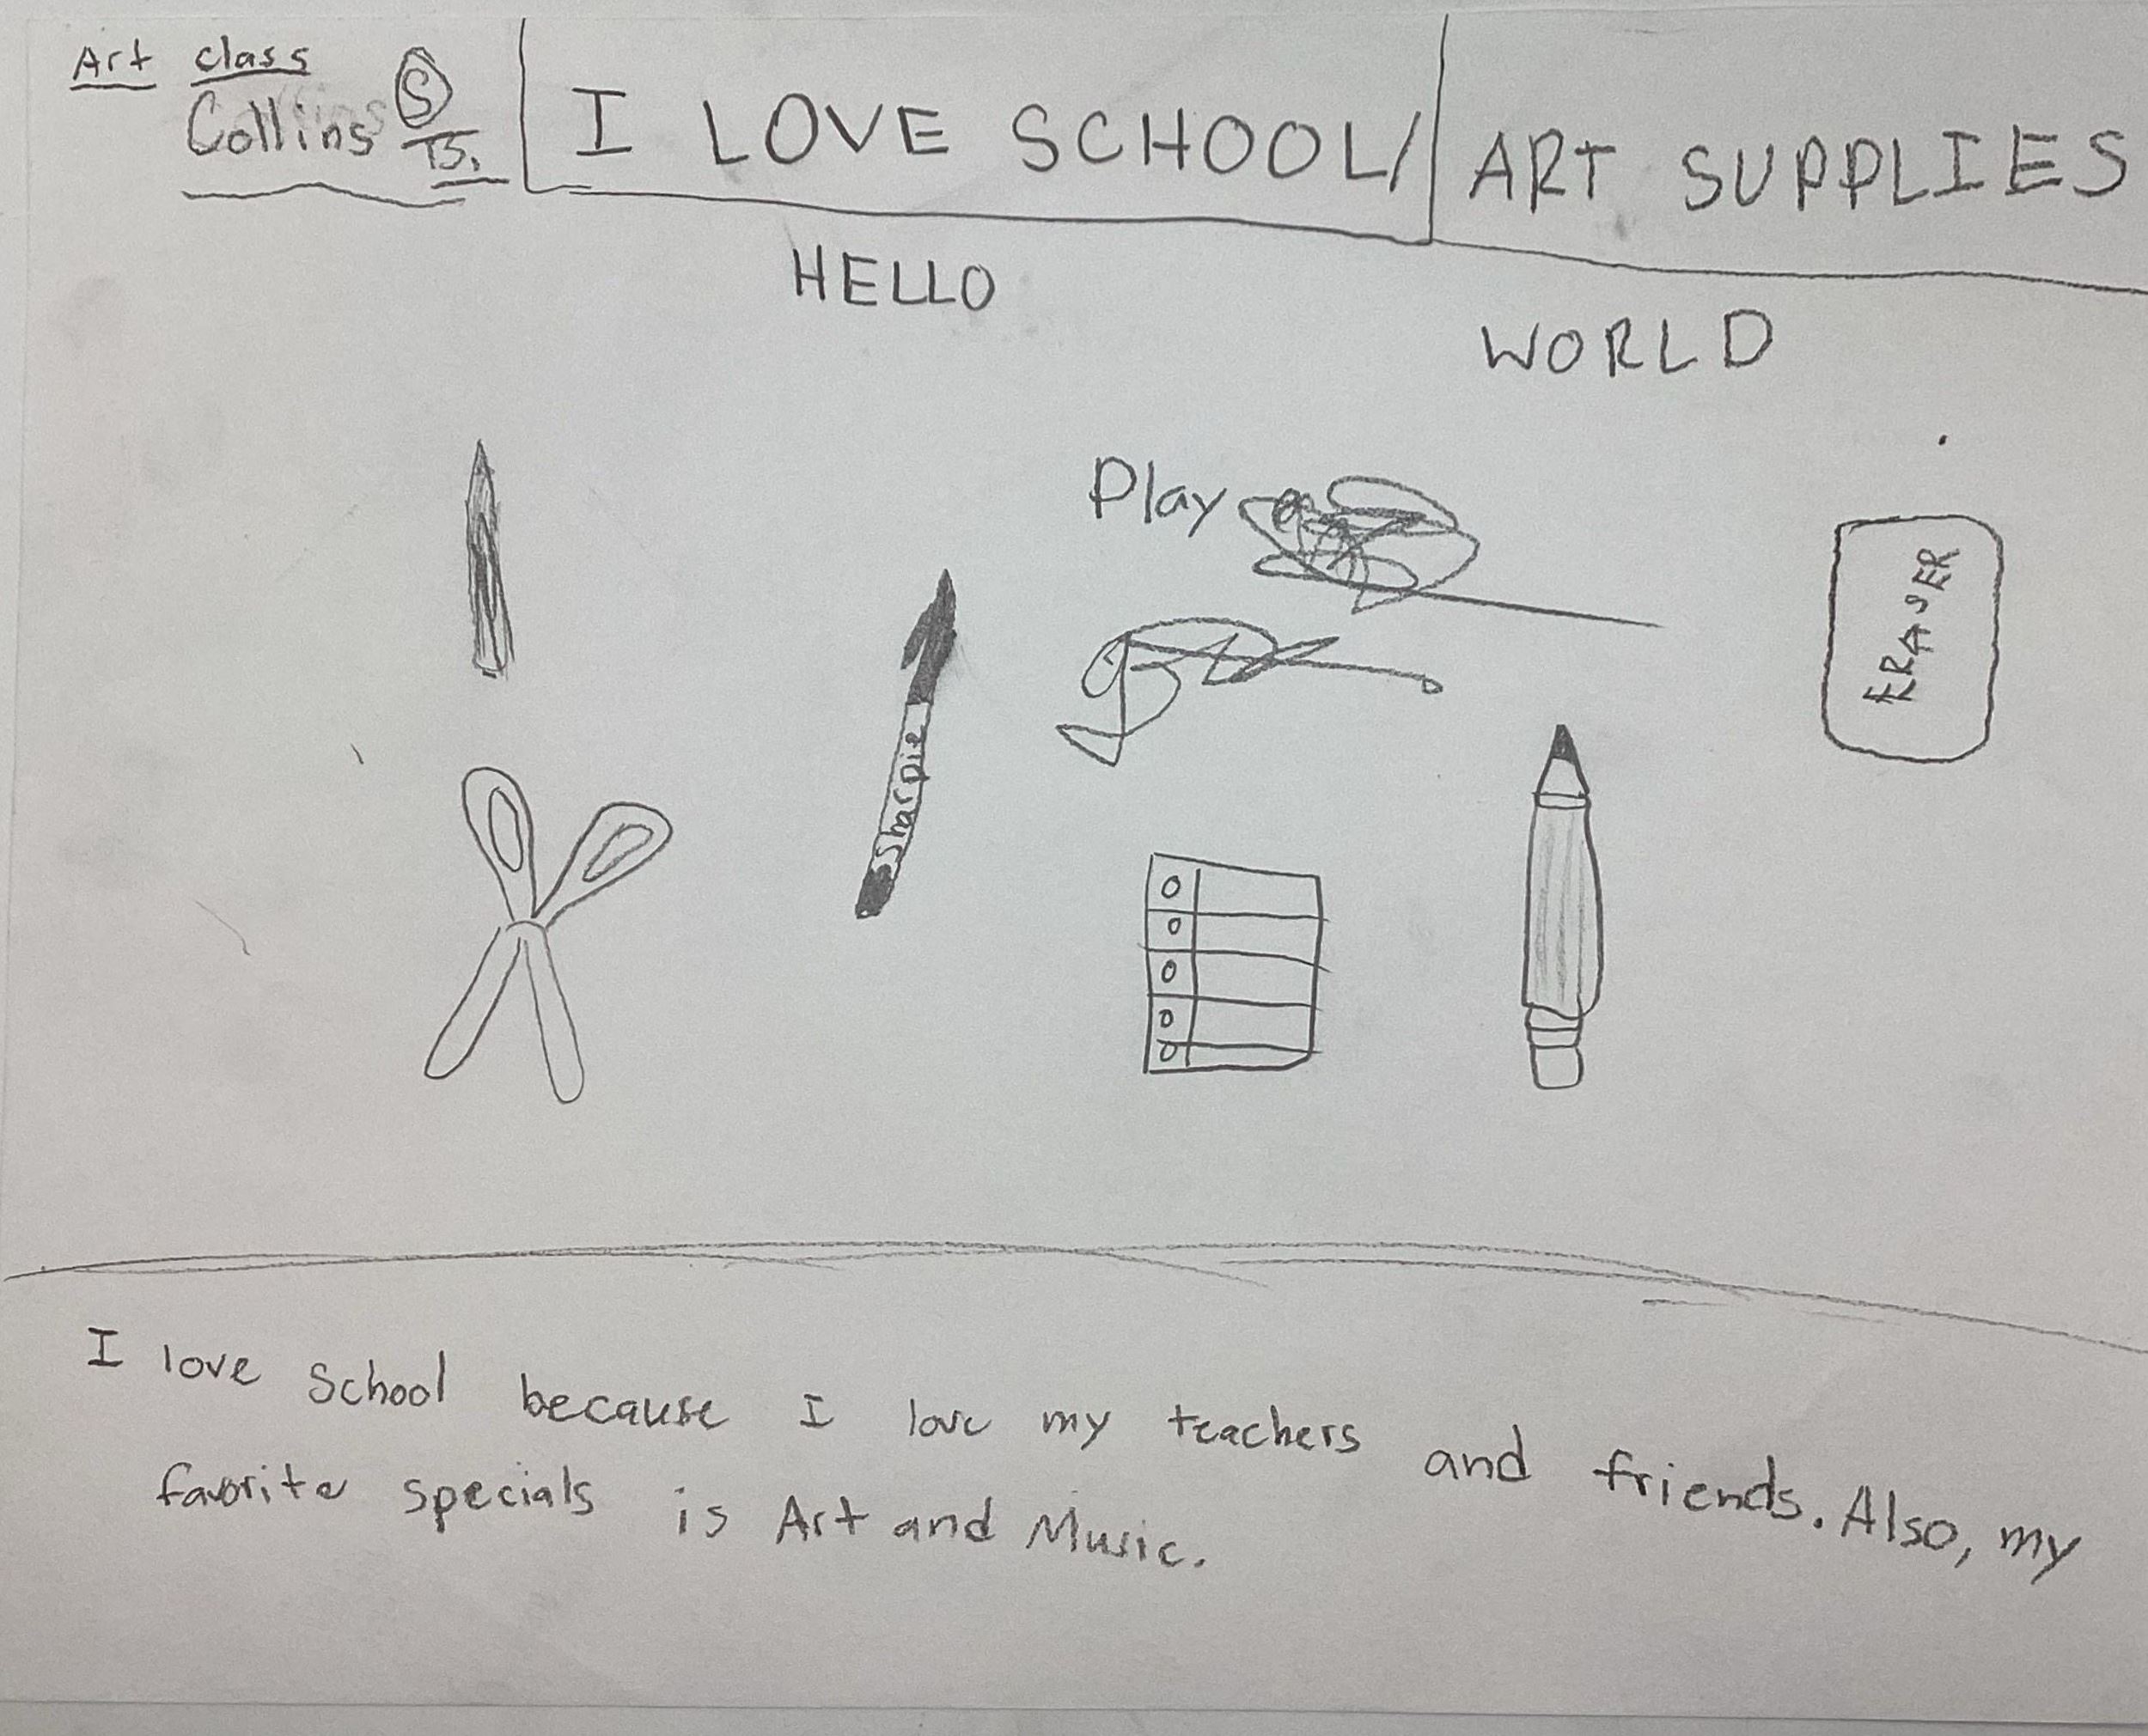 Art class
Collins S
TS.
I LOVE SCHOOL/ ART SUPPLIES
HELLO
WORLD
Play
Sharpie
ERASER
I love school because I love my teachers and friends. Also, my
favorite specials is Art and Music.